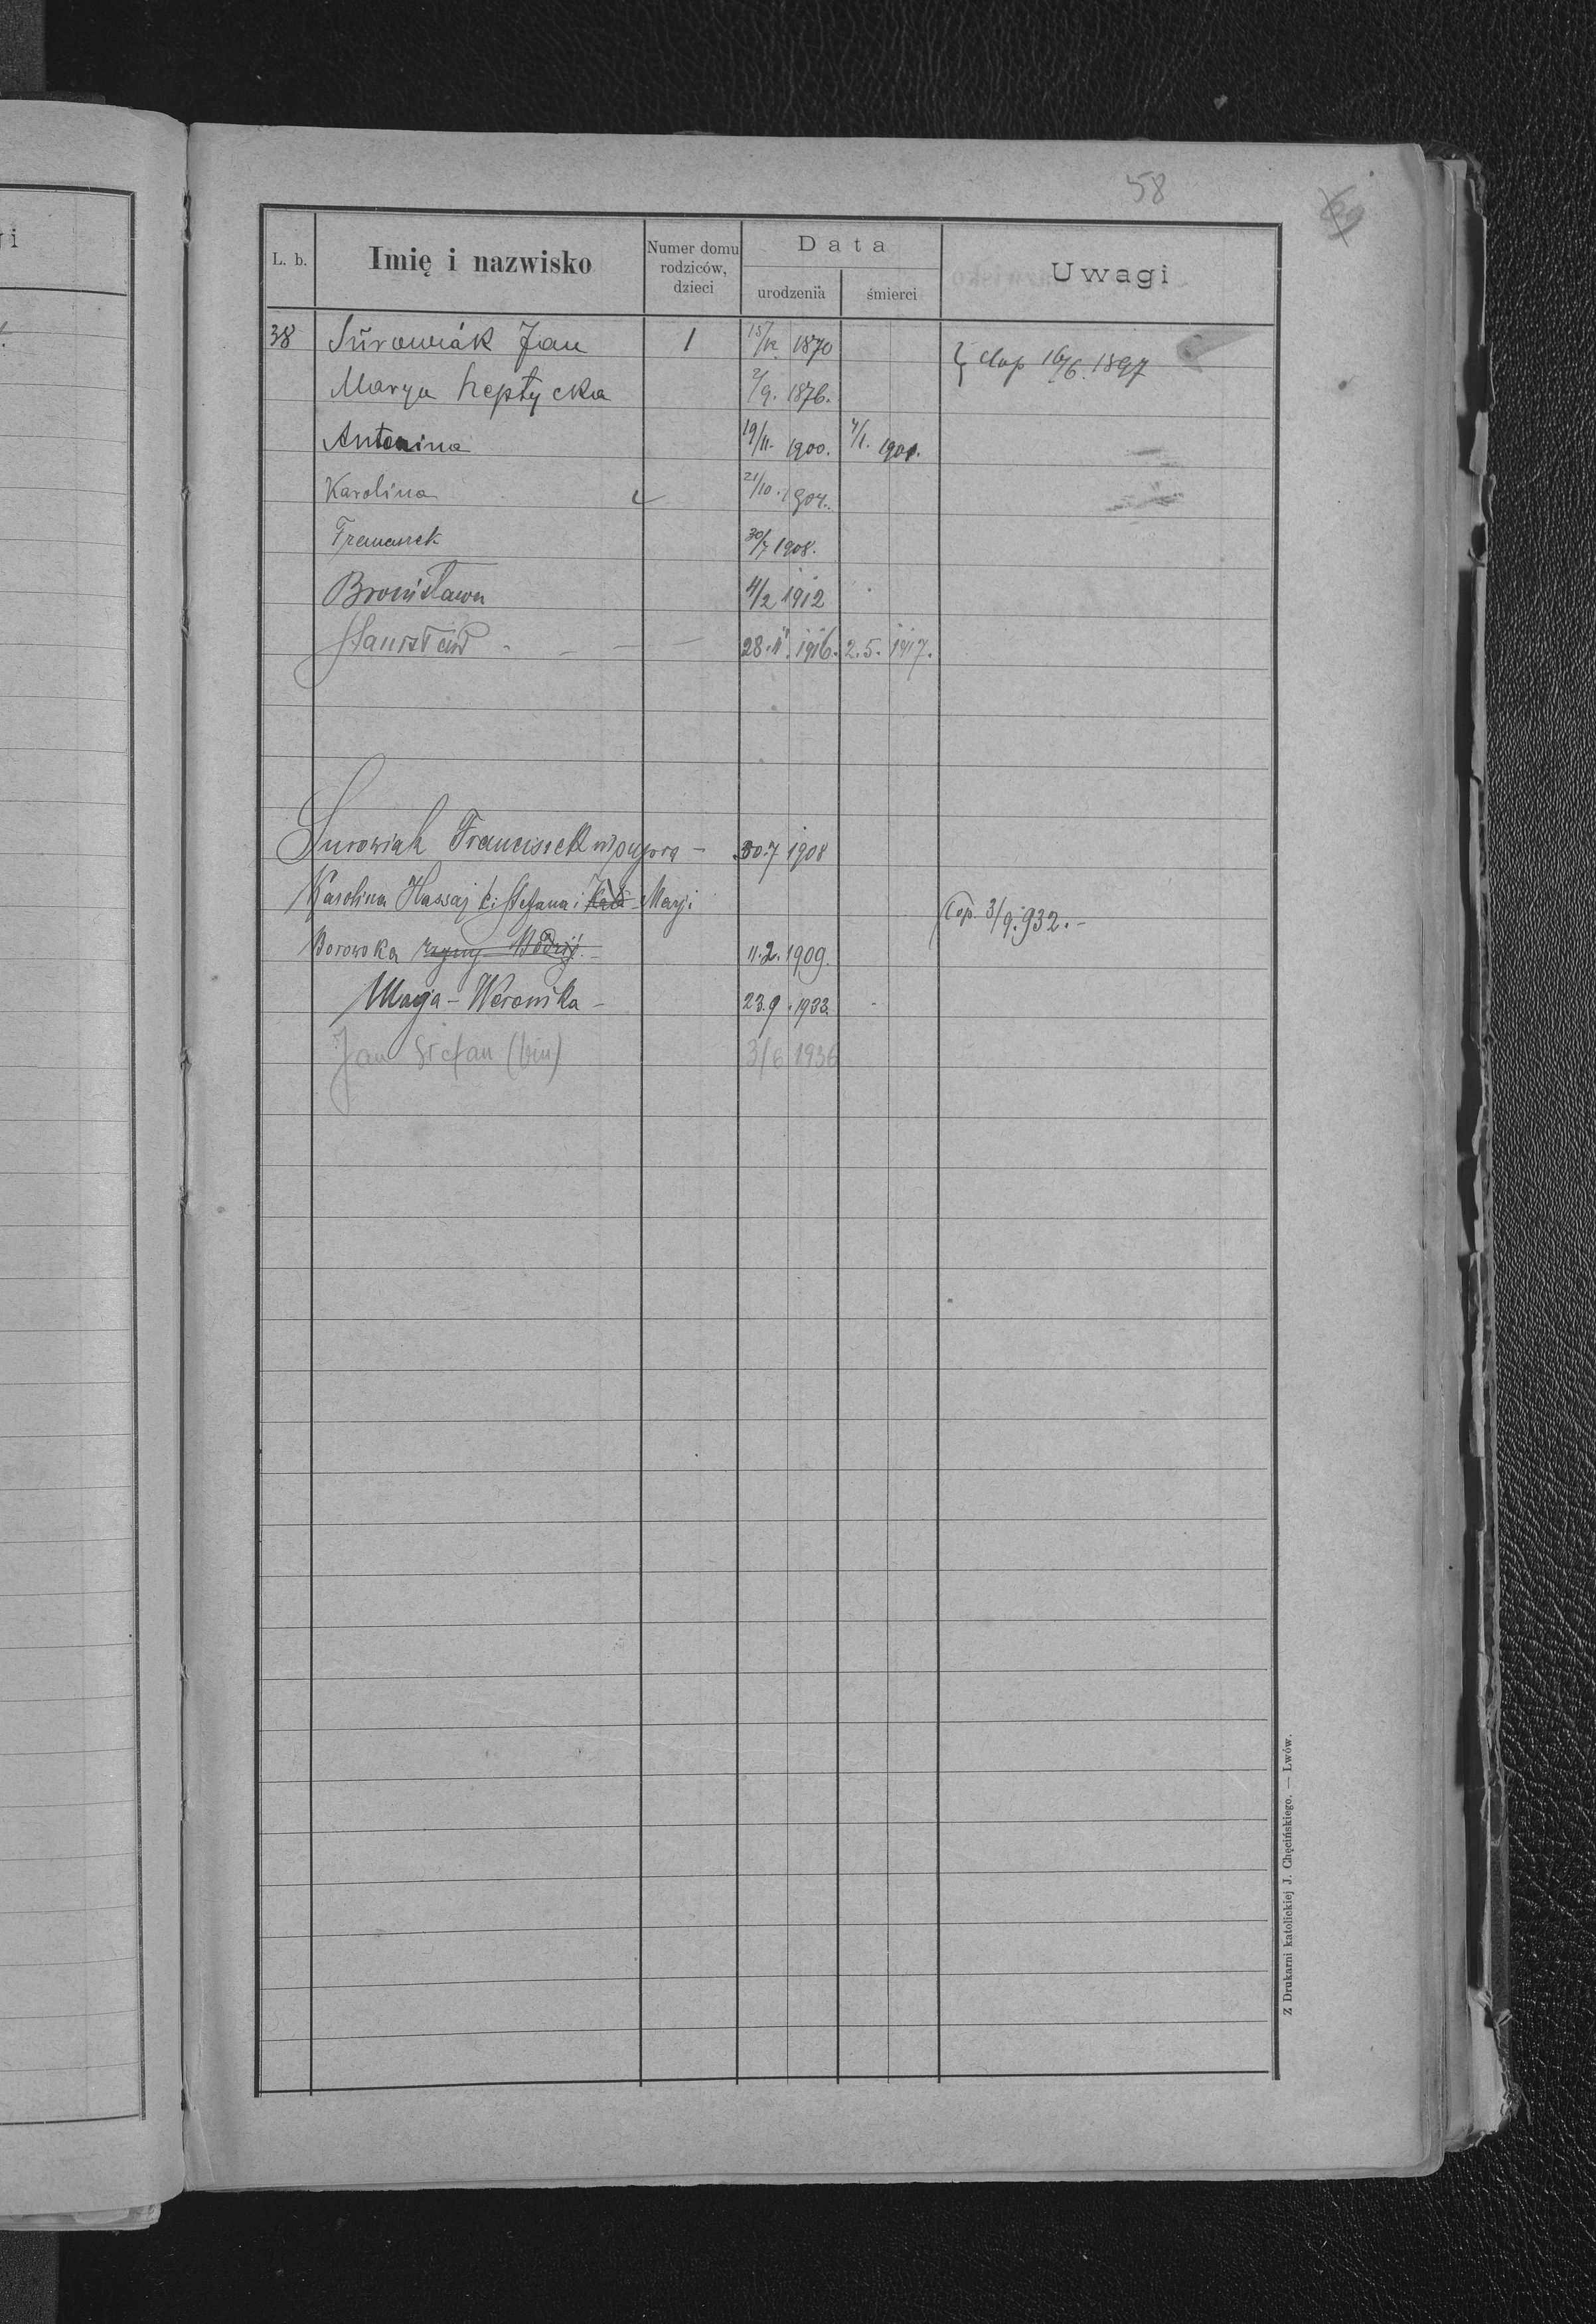 58
L. b. Imię i nazwisko Numer domu rodziców, dzieci Data urodzenia śmierci Uwagi
38 Surowiak Jan 1 15/12 1870
Marya Heptycka 2/9. 1876. Cop 16/6. 1897
Antonina 19/11. 1900. 4/1. 1901.
Karolina 21/10. 1904.
Franciszek 30/7 1908.
Bronisława 4/2 1912
Stanisław - - - - 28.11. 1916. 2.5. 1917.
Surowiak Franciszek - 30.7 1908
Karolina Hassaj c. Stefana i Marji
Cop. 3/9.932.-
Borowska 11.2.1909.
Marja - Weronika - 23.9.1933. -
Jan Stefan (bin) 3/6 1936
Z Drukarni katolickiej J. Chęcińskiego. — Lwów.